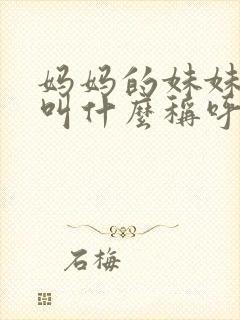 妈妈的妹妹
叫什麼稱呼
石梅